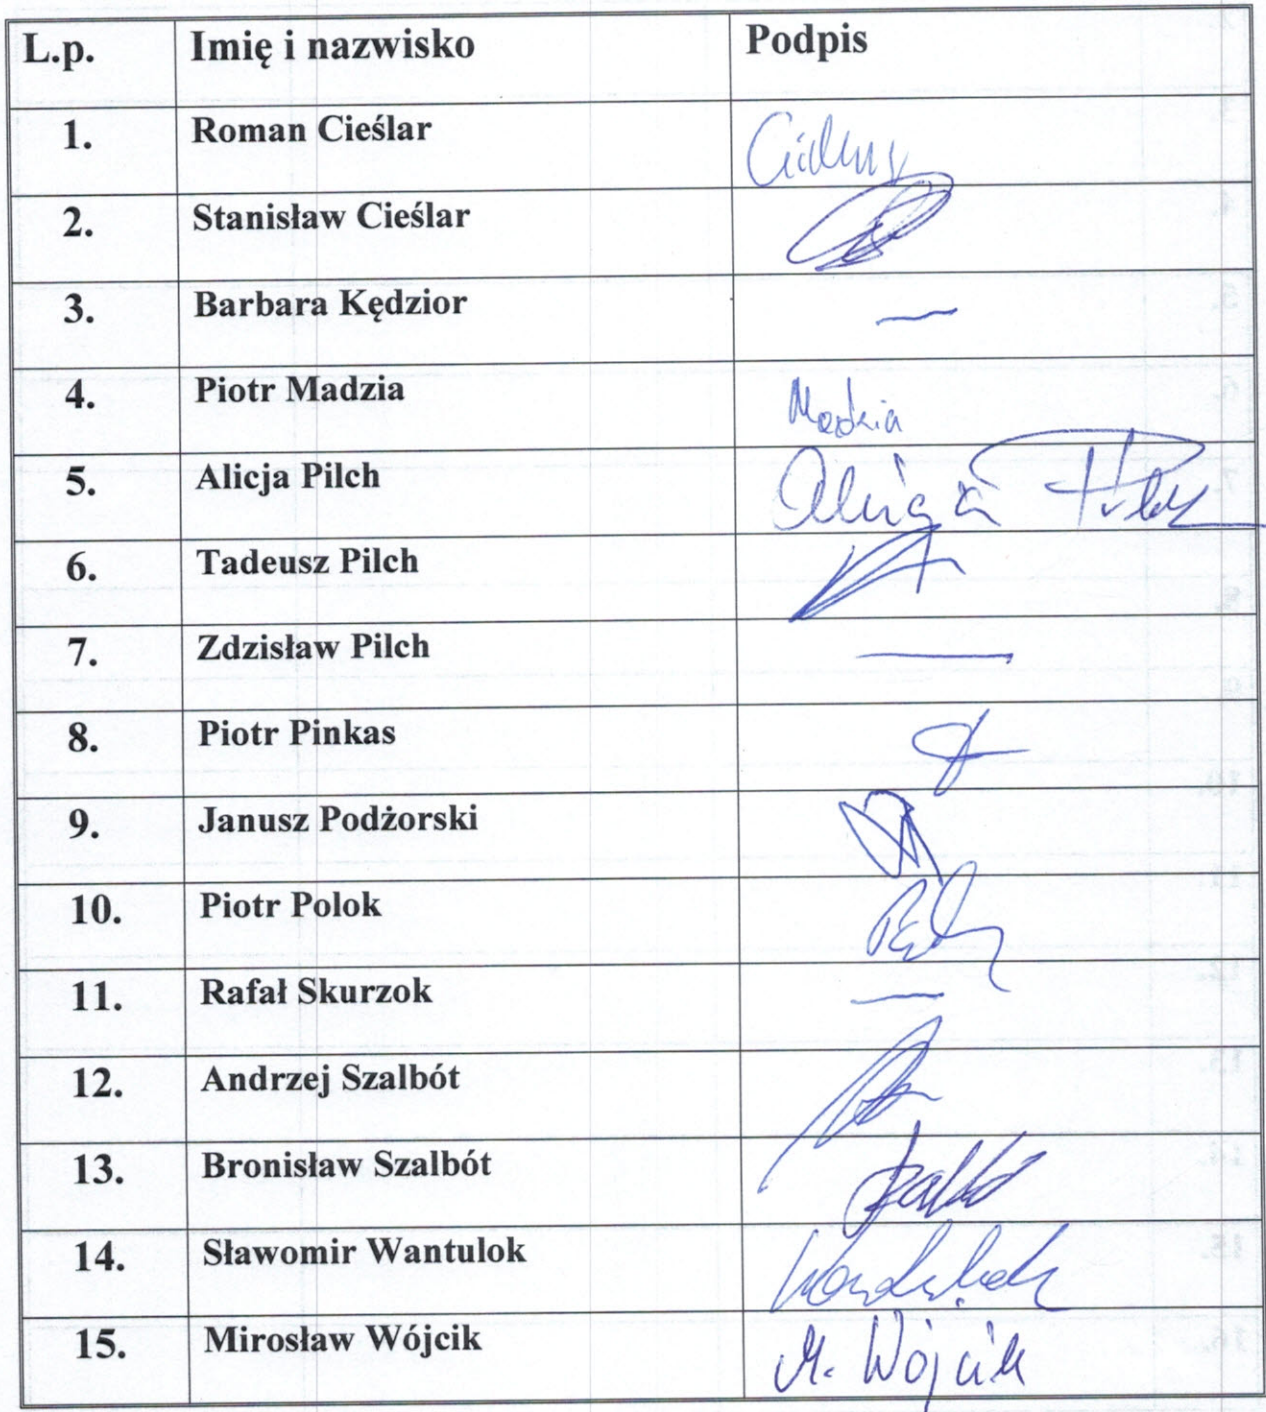 L.p. Imię i nazwisko Podpis
1. Roman Cieślar
2. Stanisław Cieślar
3. Barbara Kędzior —
4. Piotr Madzia Madzia
5. Alicja Pilch Alicja Pilch
6. Tadeusz Pilch
7. Zdzisław Pilch —
8. Piotr Pinkas
9. Janusz Podżorski
10. Piotr Polok
11. Rafał Skurzok —
12. Andrzej Szalbót
13. Bronisław Szalbót
14. Sławomir Wantulok
15. Mirosław Wójcik M. Wójcik